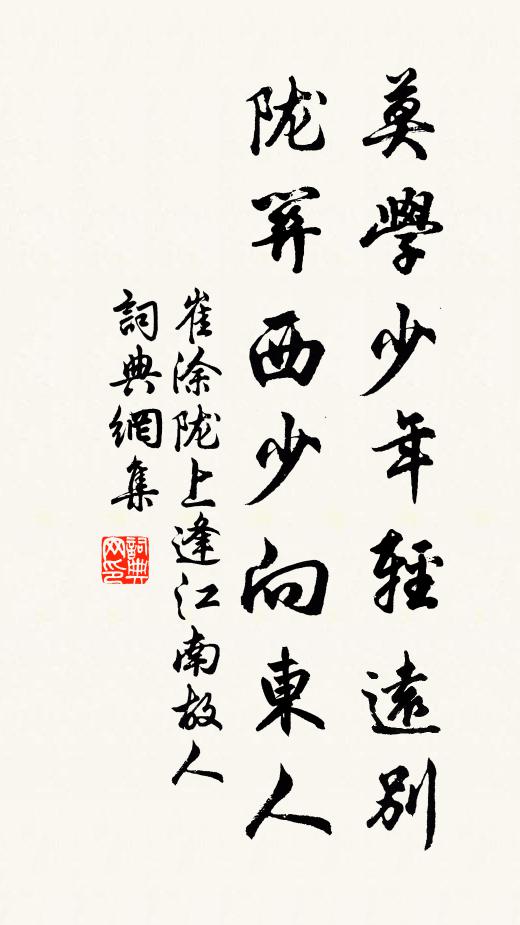 莫學少年輕遠別
陇关西少向東人
崔涂陇上逢江南故人
詞典網集
詞典
网印